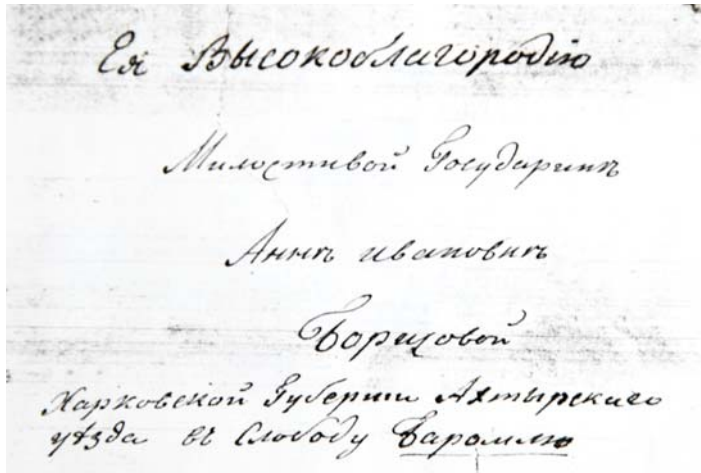 Ея Высокоблагородію
Милостивой Государинѣ
Аннѣ ивановнѣ
Борисовой
Харковской Губерніи Ахтырскаго
уѣзда въ Слободу Баромлю